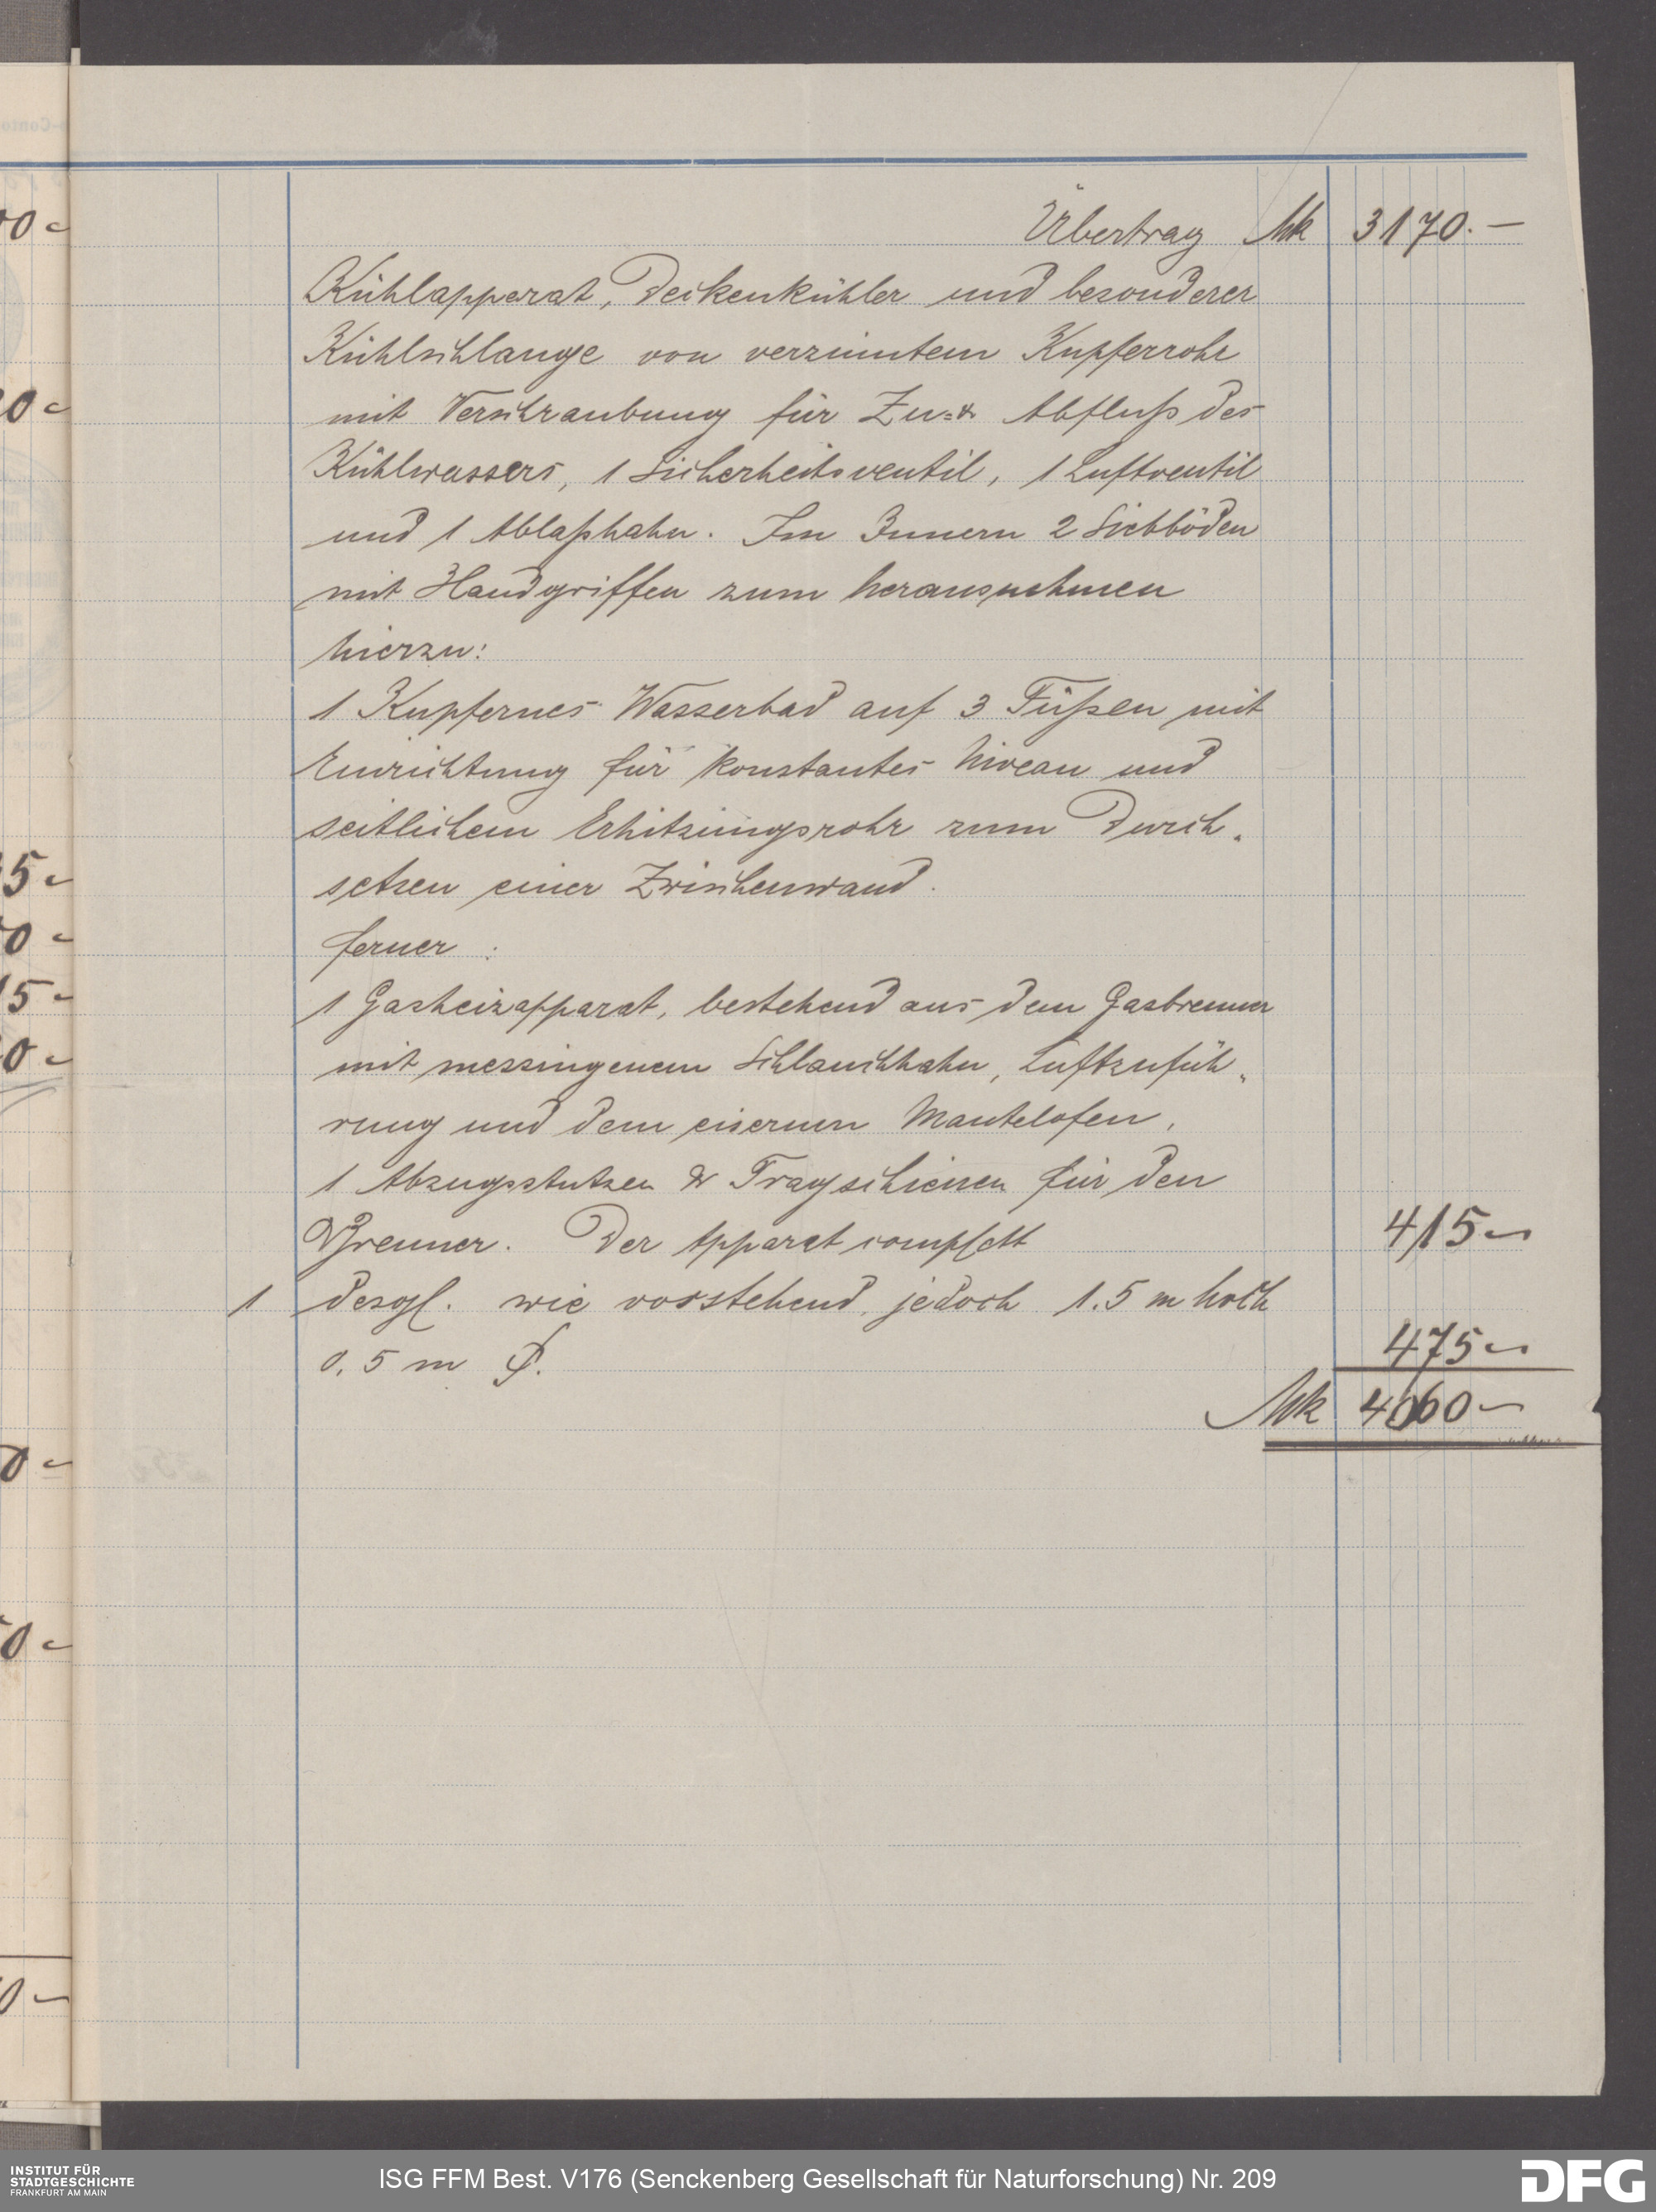 Übertrag Mk 3170.—
Kühlapparat, Deckenkühler und besonderer
Kühlschlange von verzinntem Kupferrohr
mit Verschraubung für Zu=& Abfluß des
Kühlwassers, 1 Sicherheitsventil, 1 Luftventil
und 1 Ablaßhahn. Im Innern 2 Siebböden
mit Handgriffen zum herausnehmen
hierzu:
1 Kupfernes Wasserbad auf 3 Füßen mit
Einrichtung für konstantes Niveau und
seitlichem Erhitzungsrohr zum Durch-
setzen einer Zwischenwand.
ferner :
1 Gasheizapparat, bestehend aus dem Gasbrenner
mit messingenem Schlauchhahn, Luftzufüh-
rung und dem eisernen Mantelofen,
1 Abzugsstutzen & Tragschienen für den
Brenner. Der Apparat complett 415—
1 desgl. wie vorstehend, jedoch 1.5 m hoch
0,5 m Ø. 475—
Mk 4060—
0-
0-
5-
0-
15-
0-
0-
0-
0-
INSTITUT FÜR
STADTGESCHICHTE
FRANKFURT AM MAIN
ISG FFM Best. V176 (Senckenberg Gesellschaft für Naturforschung) Nr. 209
DFG